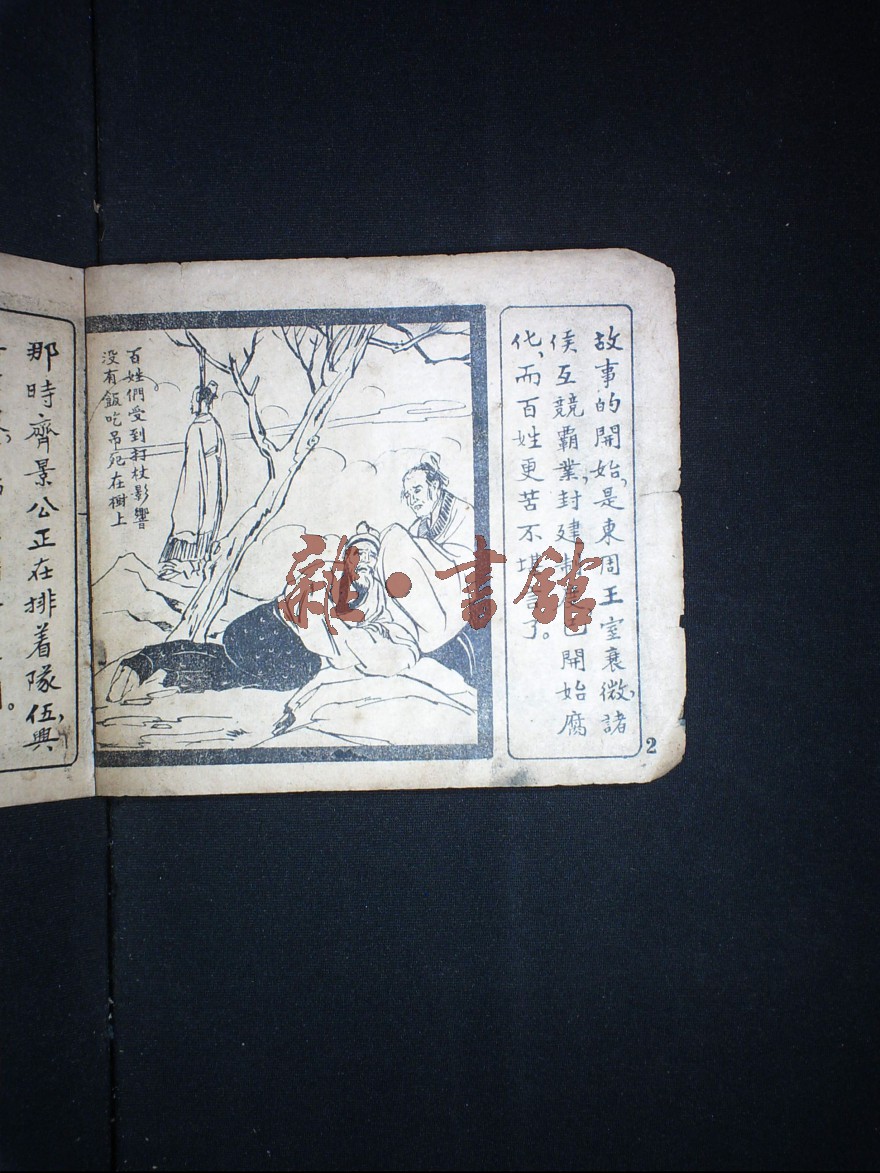 故事的開始，是東周王室衰微，諸
侯互競霸業，封建制度已開始腐
化，而百姓更苦不堪言了。
2
百姓們受到打杖影響
没有飯吃吊死在樹上
雜·書館
那時齊景公正在排着隊伍，與